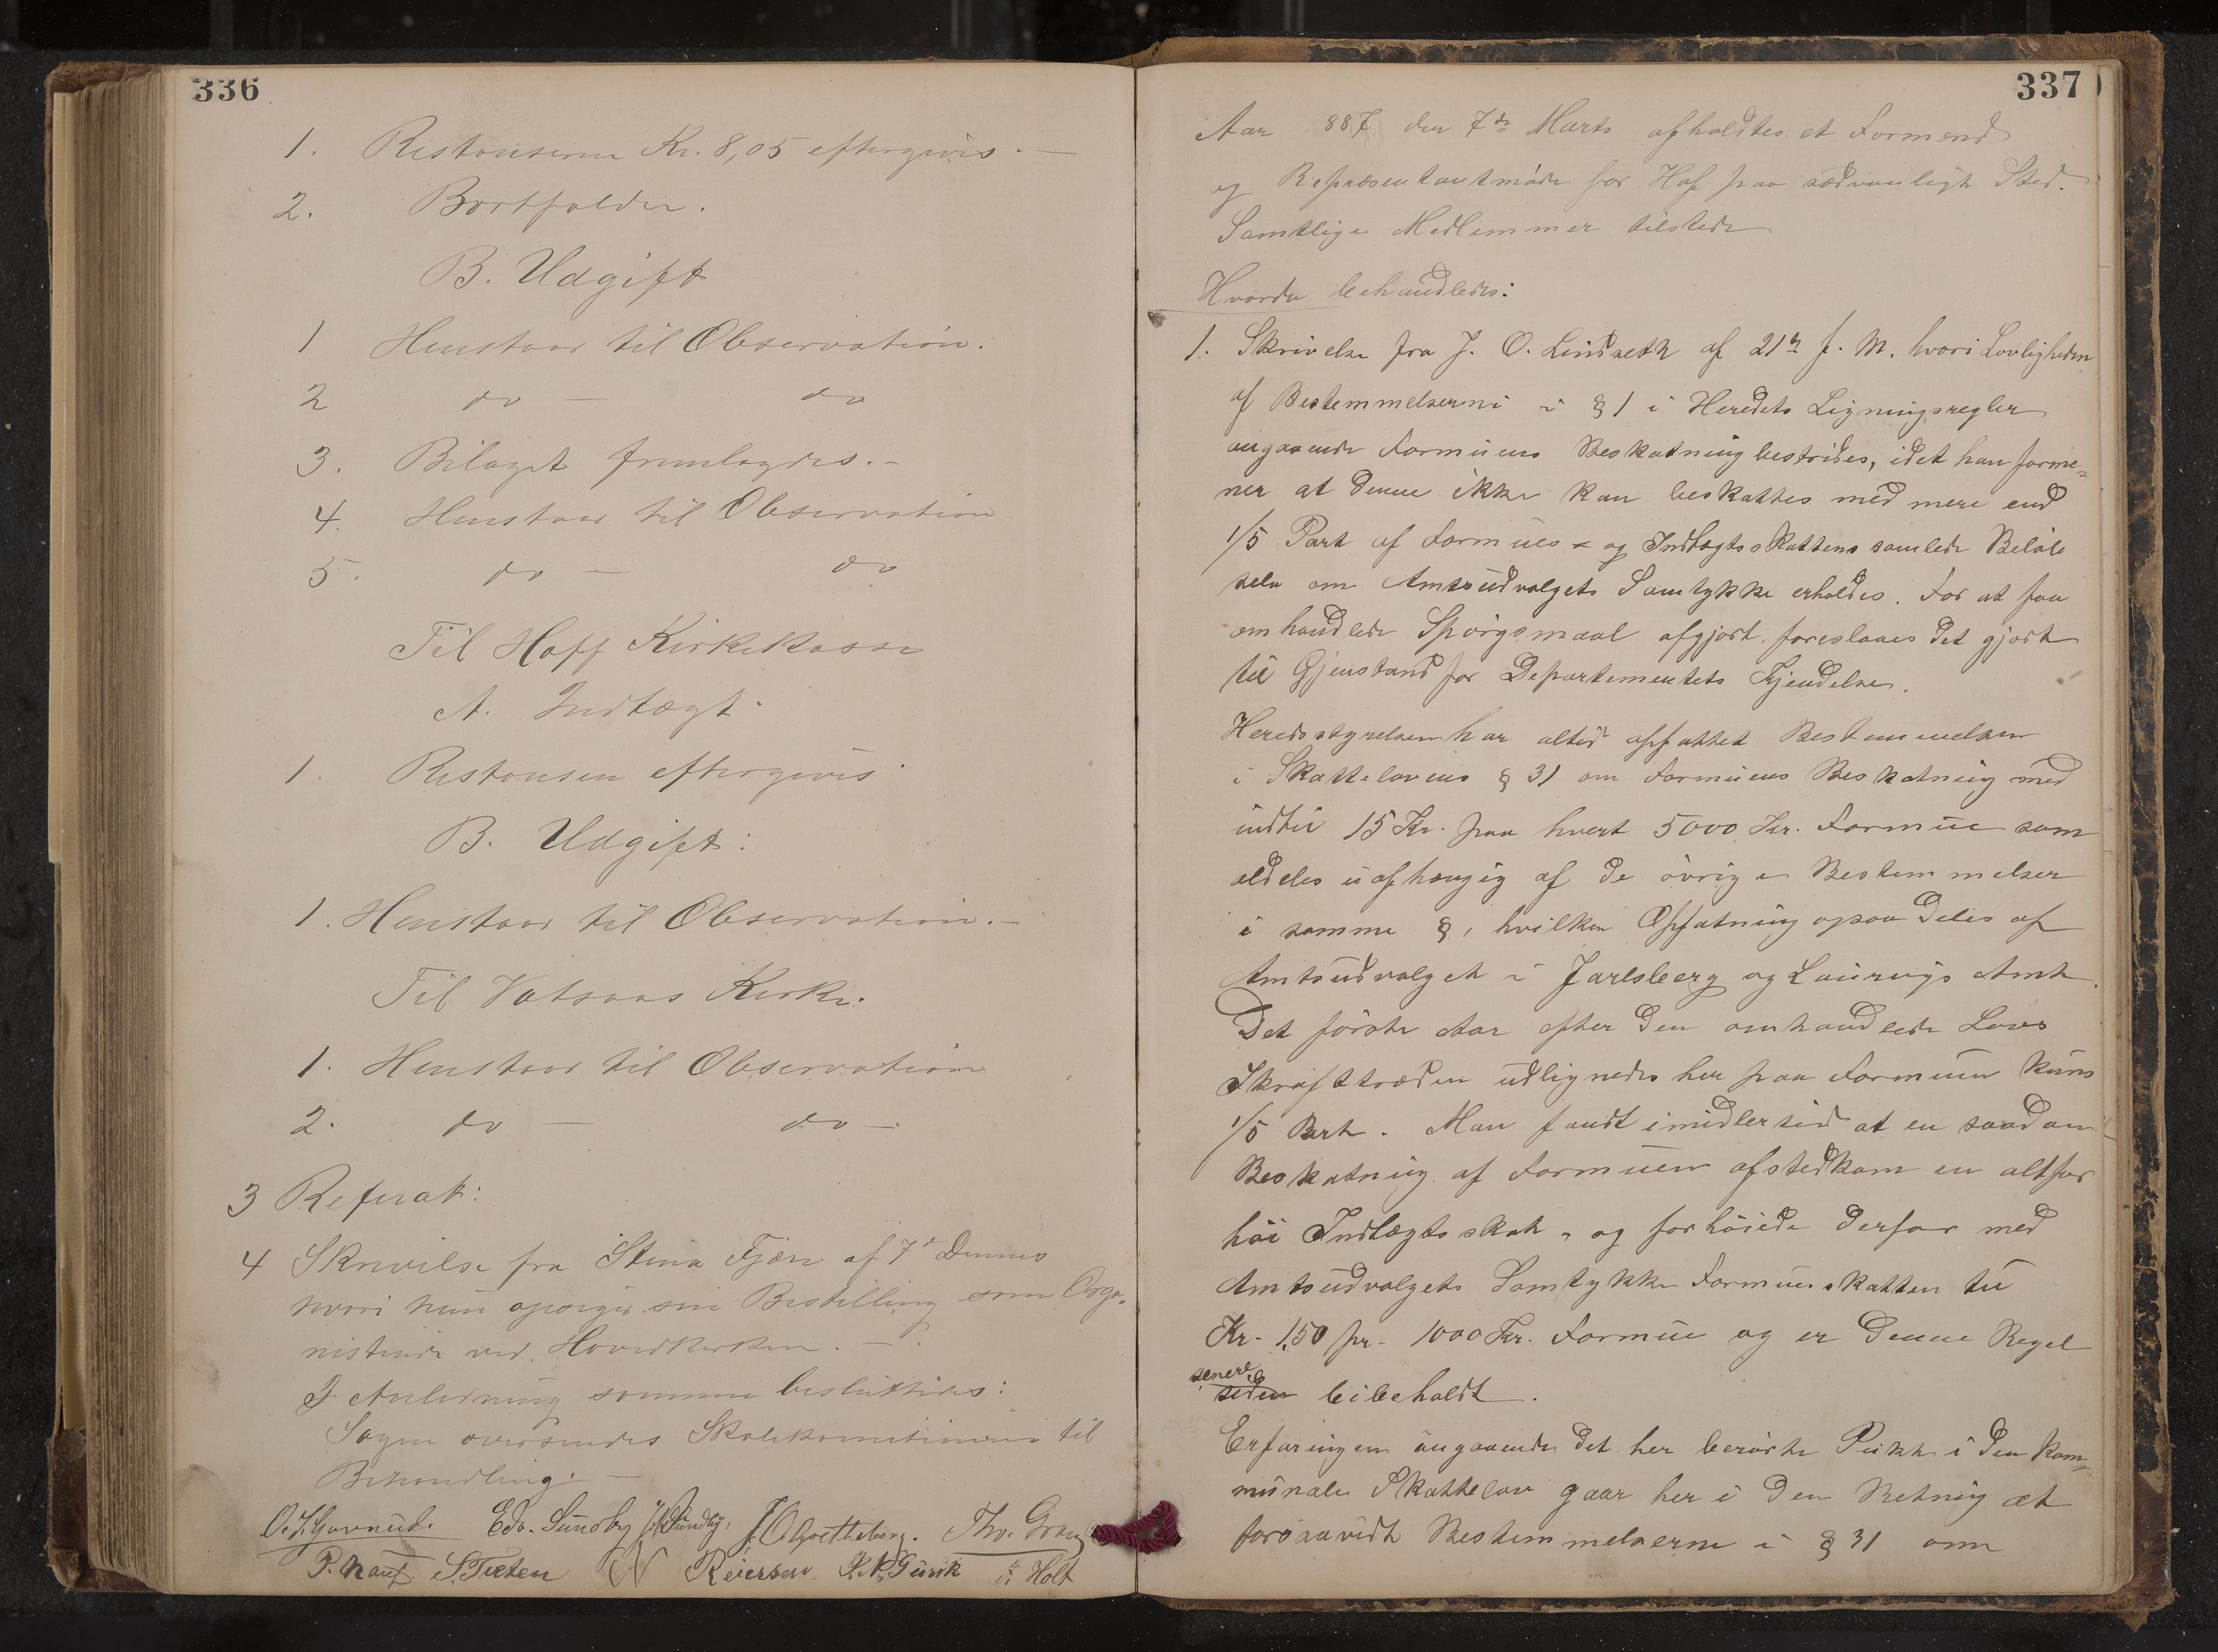 336
1. Restanserne Kr. 8,05 eftergives. —
2. Bortfalder.
B. Udgift
1 Henstaar til Observation.
2 do — do
3. Bilaget fremlagdes. -
4. Henstaar til Observation
5. do — do
Til Hoff Kirkekasse
A. Indtægt.
1. Restansen eftergives
B. Udgift:
1. Henstaar til Observation. -
Til Vatsaas Kirke.
1. Henstaar til Observation
2. do — do —
3 Referat:
4 Skrivelse fra Stina Fjære af 7de Dennes
hvori hun opsiger sin Bestilling som Orga=
nistinde ved Hovedkirken. —
I Anledning samme besluttedes:
Sagen oversendes Skolekomitionen til
Behandling. —
Edv. Sundby J. O. Grettheberg. Thv. Grang
S. Tveten N Reiersen Holt
337
Aar 887 den 7de Marts afholdtes et Formend
og Repræsentantmöde for Hof paa sædvanligt Sted.
Samtlige Medlemmer tilstede
Hvorda behandledes:
1. Skrivelse fra J. O. Lindseth af 21de f. M. hvori Lovligheden
af Bestemmelserne i § 1 i Heredets Ligningsregler
angaaende Formuens Beskatning bestrides, idet han forme=
ner at denne ikke kan beskattes med mere end
1/5 Part af Formues - og Indtægtsskattens samlede Belöb
selv om Amtsudvalgets Samtykke erholdes. For at faa
omhandlede Spörgsmaal afgjort foreslaaes det gjort
til Gjenstand for Departementets Kjendelse.
Heredsstyrelsen har altid opfattet Bestemmelsen
i Skattelovens § 31 om Formuens Beskatning med
indtil 15 Kr. paa hvert 5000 Kr. Formue som
aldeles uafhængig af de övrige Bestemmelser
i samme §, hvilken Opfatning ogsaa deles af
Amtsudvalget i Jarlsberg og Laurvigs Amt.
Det förste Aar efter den omhandlede Lovs
Ikrafttræden udlignedes her paa Formuen kuns
1/5 Part. Man fandt imidlertid at en saadan
Beskatning af Formuen afstedkom en altfor
höi Indtægtsskat, og forhöiede derfor med
Amtsudvalgets Samtykke Formuesskatten til
Kr. 1,50 pr. 1000 Kr. Formue og er denne Regel
senere
siden beibeholdt.
Erfaringen angaaende det her berörte Punkt i den kom=
munale Skattelov gaar her i den Retning at
forsaavidt Bestemmelserne i § 31 om